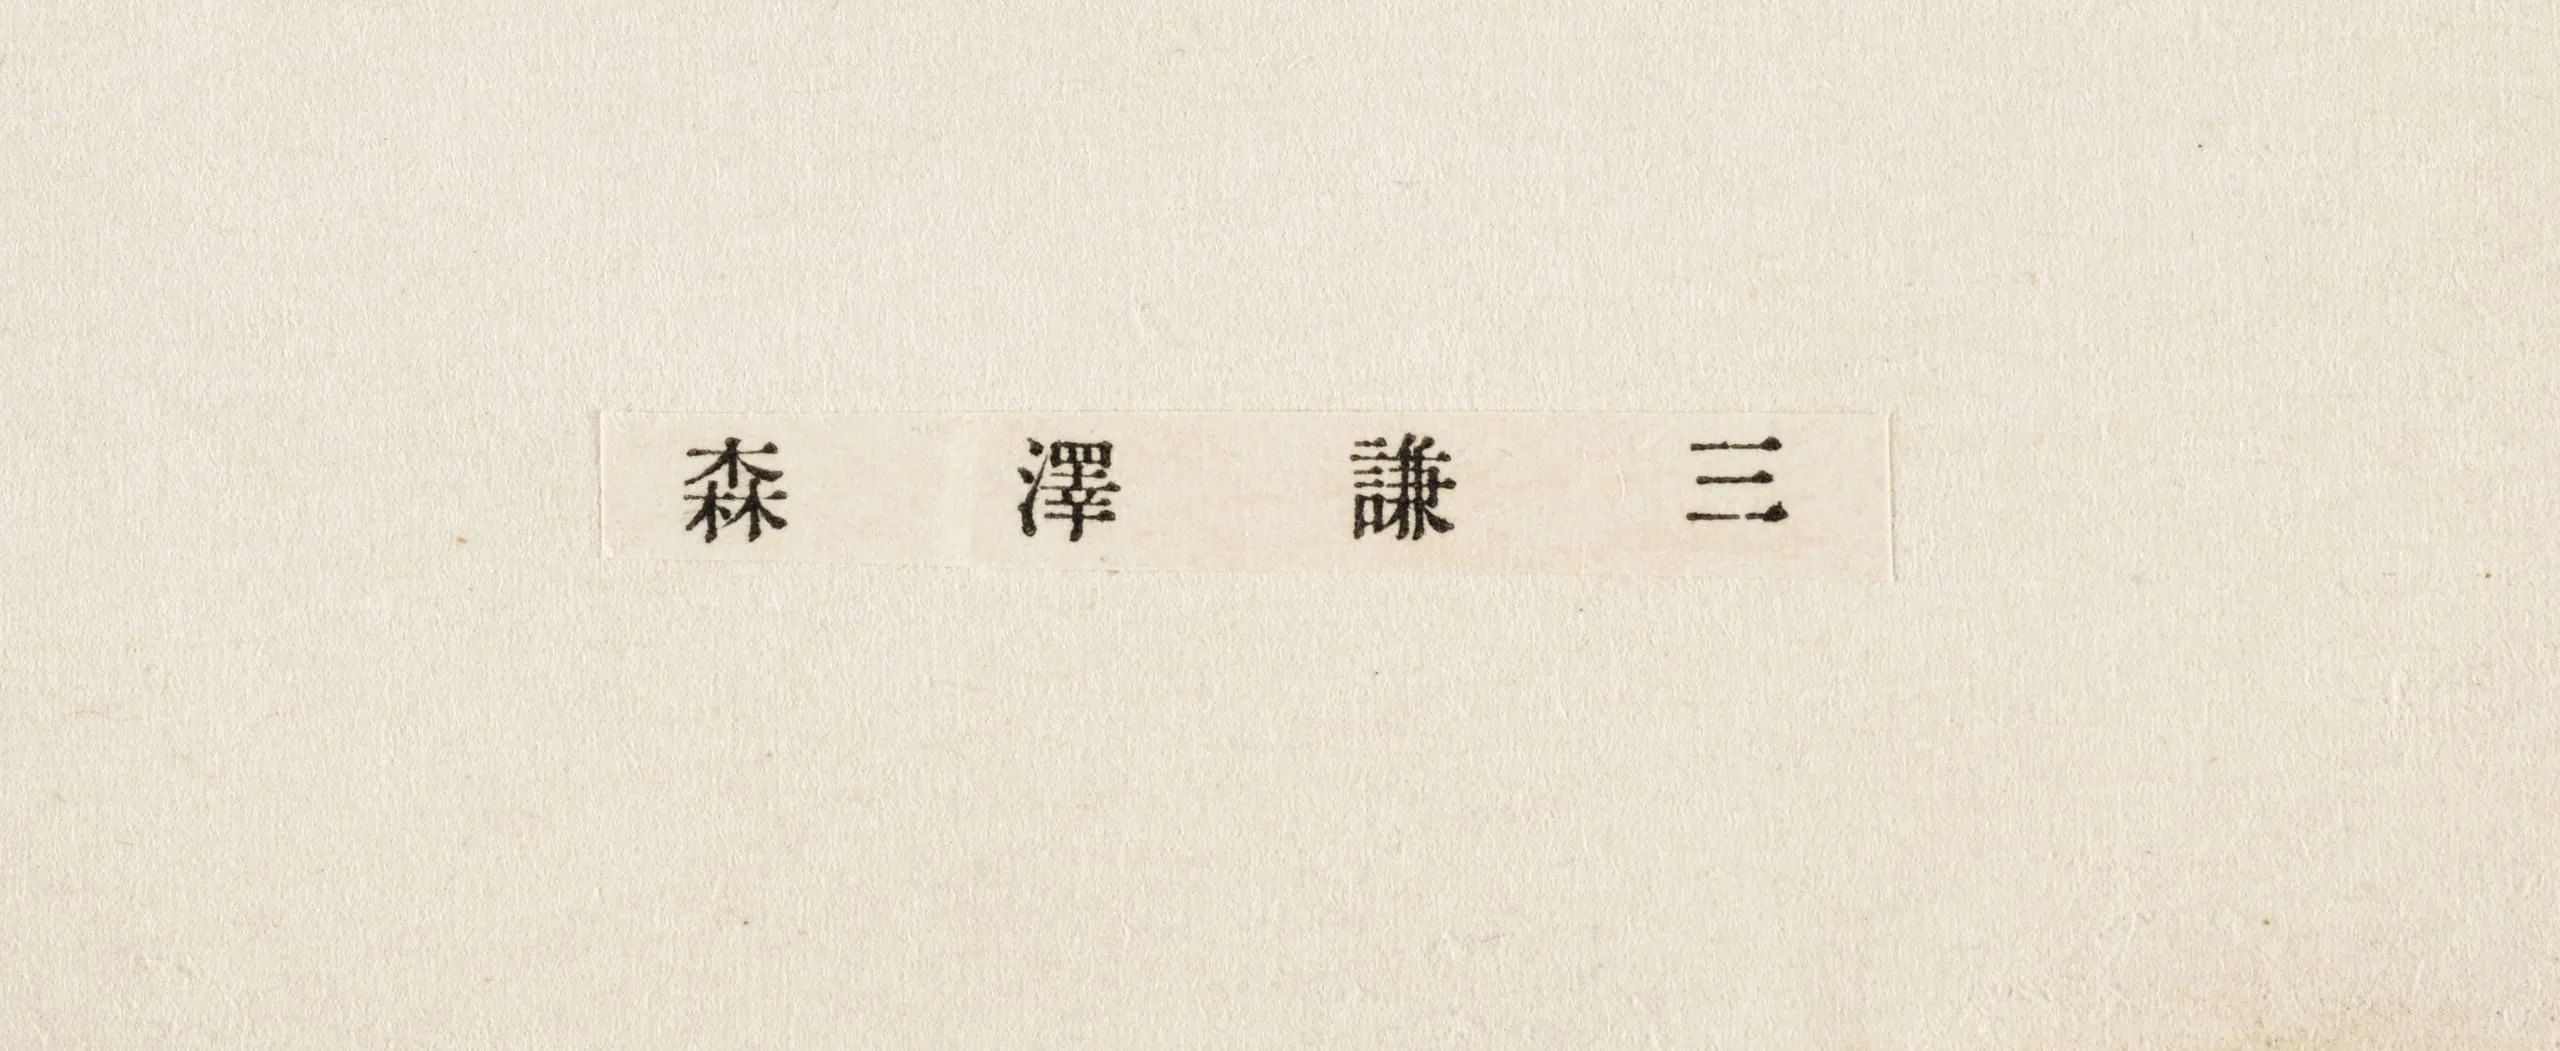 森澤謙三